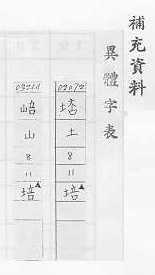 補充資料
異體字表
02072
土
8
11
培▲
03211
山
8
11
培▲